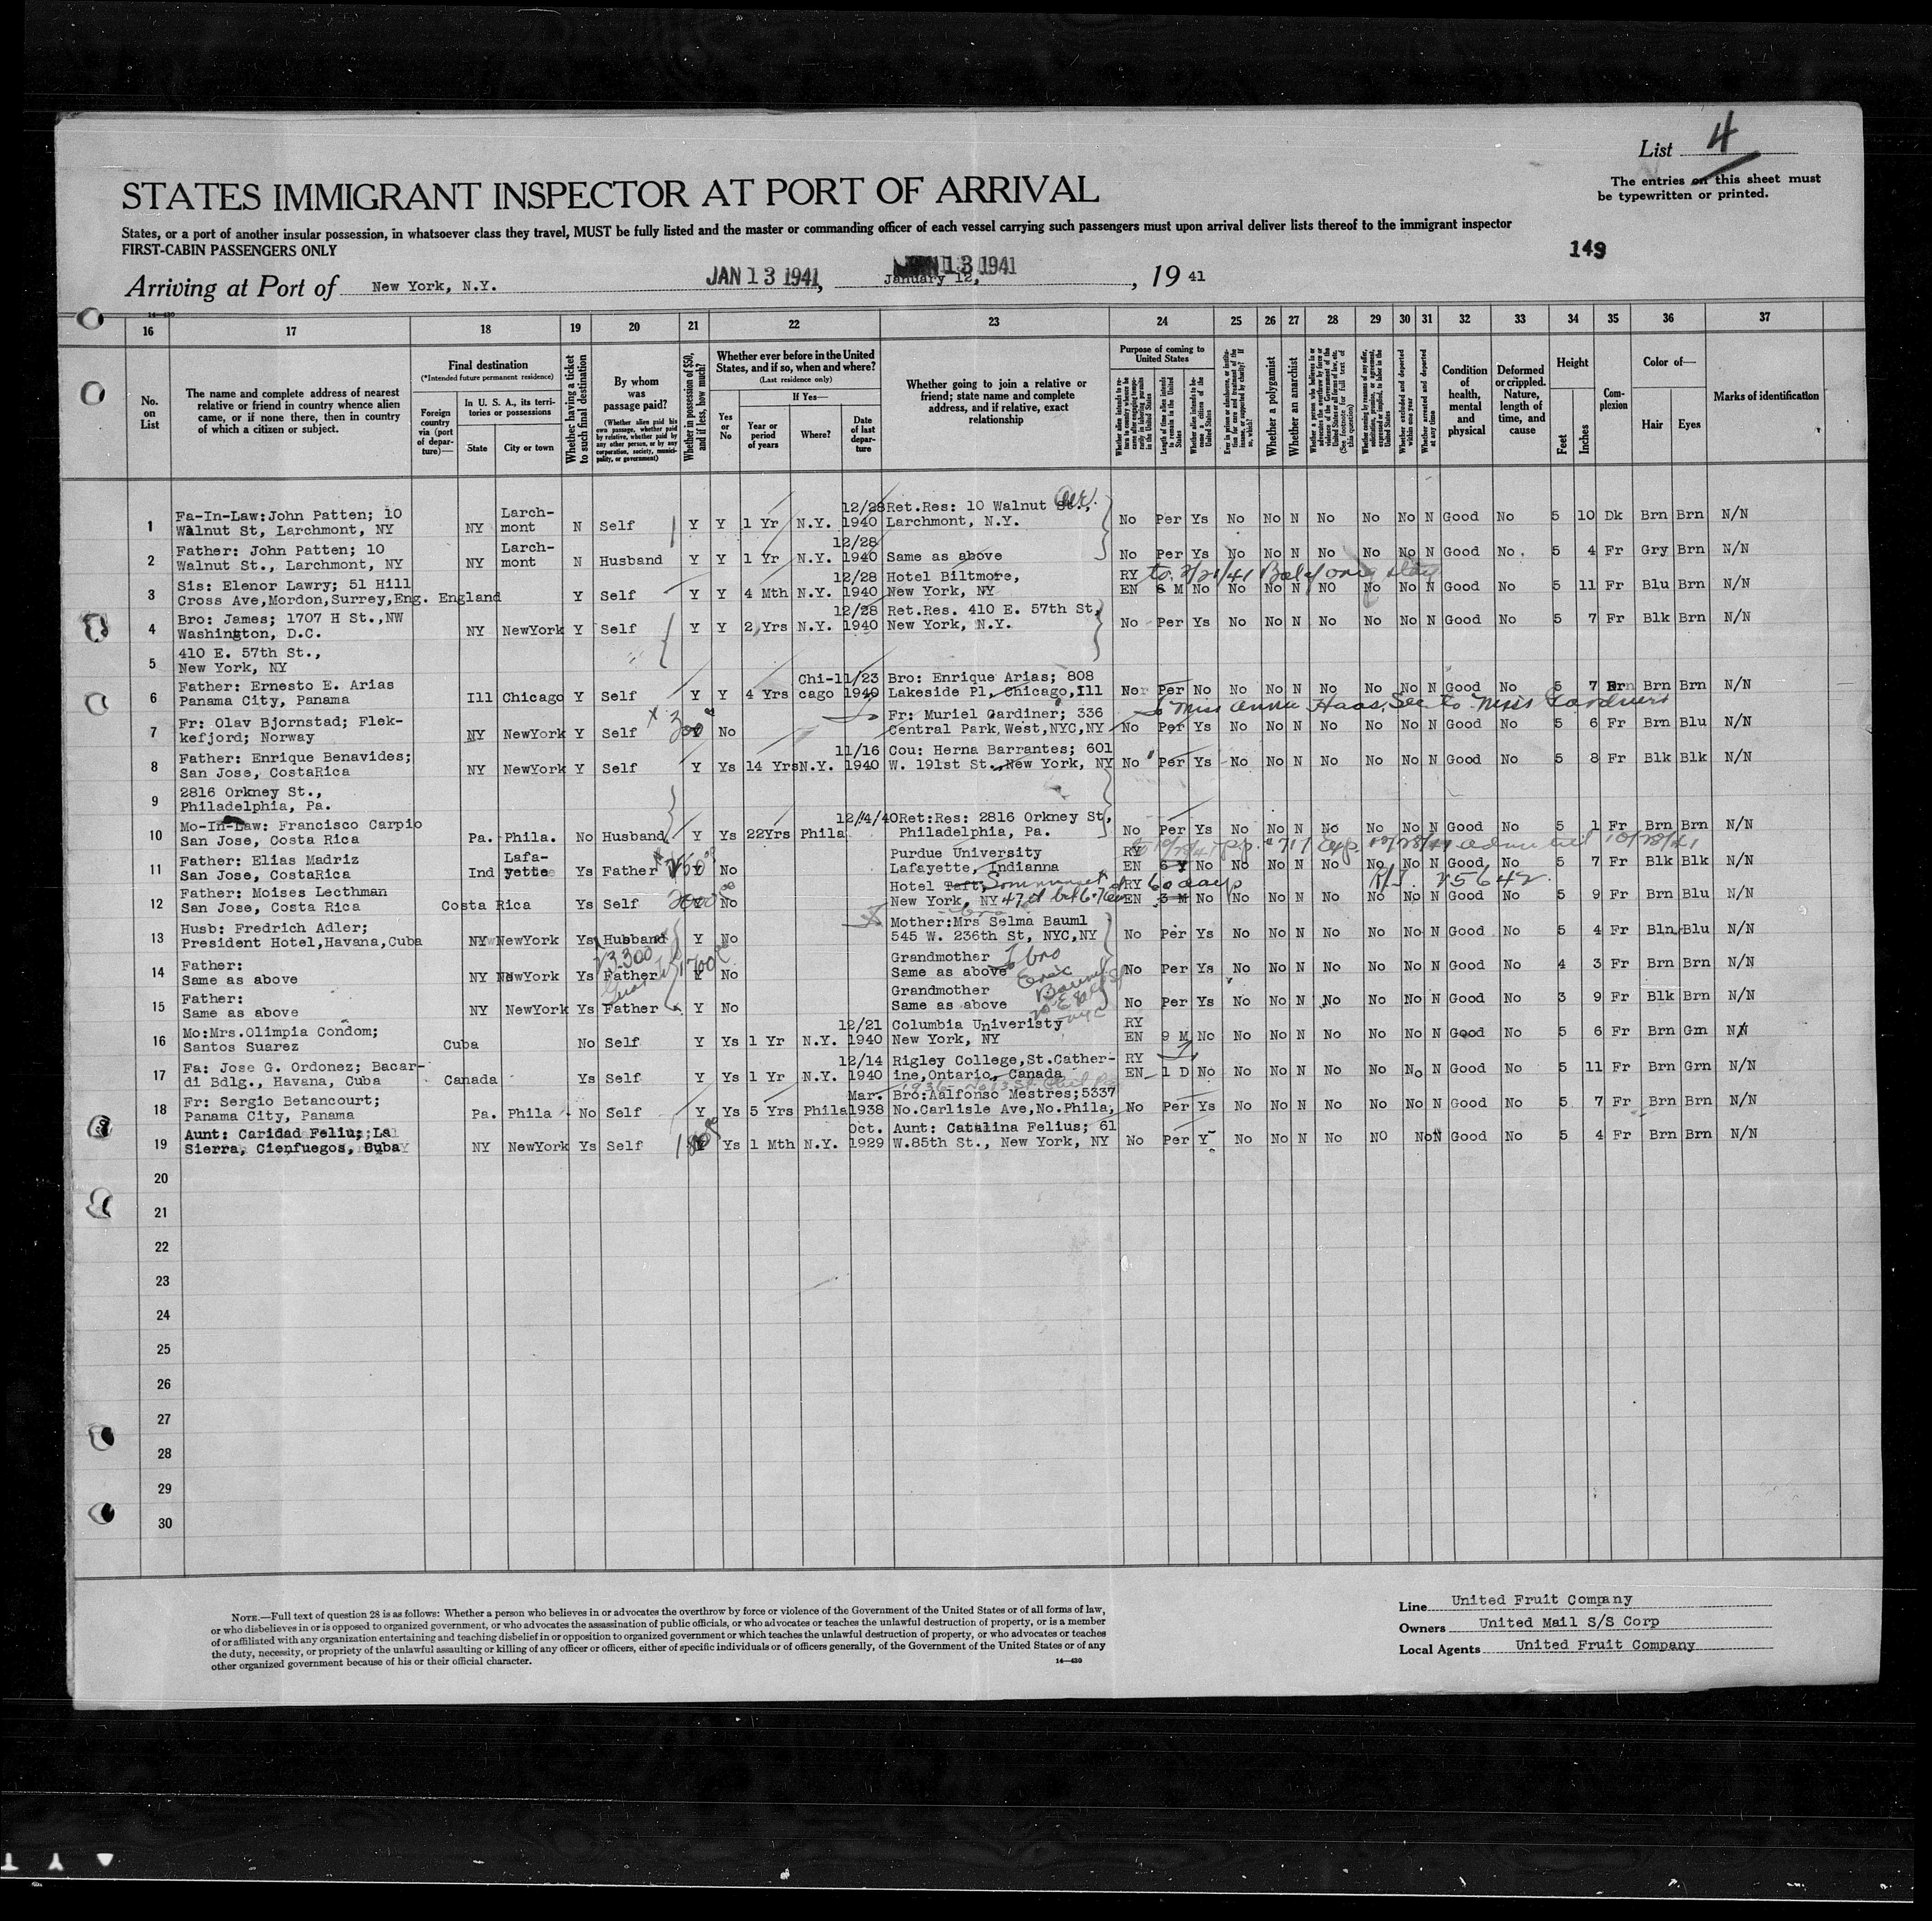 List 4
The entries on this sheet must
be typewritten or printed.
STATES IMMIGRANT INSPECTOR AT PORT OF ARRIVAL
States, or a port of another insular possession, in whatsoever class they travel, MUST be fully listed and the master or commanding officer of each vessel carrying such passengers must upon arrival deliver lists thereof to the immigrant inspector
FIRST-CABIN PASSENGERS ONLY
149
Arriving at Port of New York, N.Y. JAN 13 1941, January 12, JAN 13 1941, 19 41
16 17 18 19 20 21 22 23 24 25 26 27 28 29 30 31 32 33 34 35 36 37
No. on List
The name and complete address of nearest relative or friend in country whence alien came, or if none there, then in country of which a citizen or subject.
Final destination
(*Intended future permanent residence)
Foreign country via (port of departure)—
In U. S. A., its territories or possessions
State
City or town
Whether having a ticket to such final destination
By whom was passage paid?
(Whether alien paid his own passage, whether paid by relative, whether paid by any other person, or by any corporation, society, municipality, or government)
Whether in possession of $50, and if less, how much?
Whether ever before in the United States, and if so, when and where?
(Last residence only)
Yes or No
If Yes—
Year or period of years
Where?
Date of last departure
Whether going to join a relative or friend; state name and complete address, and if relative, exact relationship
Purpose of coming to United States
Length of time alien intends to remain in the United States
Whether alien intends to become a citizen of the United States
Whether a polygamist
Whether an anarchist
Whether excluded and deported within one year
Whether arrested and deported at any time
Condition of health, mental and physical
Deformed or crippled. Nature, length of time, and cause
Height
Feet
Inches
Complexion
Color of—
Hair
Eyes
Marks of identification
1 Fa-In-Law:John Patten; 10 Walnut St, Larchmont, NY NY Larchmont N Self Y Y 1 Yr N.Y. 12/28 1940 Ret.Res: 10 Walnut St., Larchmont, N.Y. No Per Ys No No N No No No N Good No 5 10 Dk Brn Brn N/N
2 Father: John Patten; 10 Walnut St., Larchmont, NY NY Larchmont N Husband Y Y 1 Yr N.Y. 12/28 1940 Same as above No Per Ys No No N No No No N Good No. 5 4 Fr Gry Brn N/N
3 Sis: Elenor Lawry; 51 Hill Cross Ave,Mordon,Surrey,Eng. England Y Self Y Y 4 Mth N.Y. 12/28 1940 Hotel Biltmore, New York, NY RY EN 6 M No No No N NO No No N Good No 5 11 Fr Blu Brn N/N
4 Bro: James; 1707 H St.,NW Washington, D.C. NY NewYork Y Self Y Y 2 Yrs N.Y. 12/28 1940 Ret.Res. 410 E. 57th St, New York, N.Y. No Per Ys No No N No No No N Good No 5 7 Fr Blk Brn N/N
5 410 E. 57th St., New York, NY
6 Father: Ernesto E. Arias Panama City, Panama Ill Chicago Y Self Y Y 4 Yrs Chicago 11/23 1940 Bro: Enrique Arias; 808 Lakeside Pl, Chicago,Ill No Per No No No N No No No N Good No 5 7 Brn Brn Brn N/N
Miss Anna Haas, Sec to Miss Gardiner
7 Fr: Olav Bjornstad; Flekkefjord; Norway NY NewYork Y Self 300 No Fr: Muriel Gardiner; 336 Central Park West,NYC,NY No Per Ys No No N No No No N Good No 5 6 Fr Brn Blu N/N
8 Father: Enrique Benavides; San Jose, CostaRica NY NewYork Y Self Y Ys 14 Yrs N.Y. 11/16 1940 Cou: Herna Barrantes; 601 W. 191st St. New York, NY No Per Ys No No N No No No N Good No 5 8 Fr Blk Blk N/N
9 2816 Orkney St., Philadelphia, Pa.
10 Mo-In-Law: Francisco Carpio San Jose, Costa Rica Pa. Phila. No Husband Y Ys 22Yrs Phila 12/4/40 Ret:Res: 2816 Orkney St, Philadelphia, Pa. No Per Ys No No N No No No N Good No 5 1 Fr Brn Brn N/N
11 Father: Elias Madriz San Jose, CostaRica Ind Lafayette Ys Father No Purdue University Lafayette, Indianna RY EN 6 Y No No No N No No No N Good No 5 7 Fr Blk Blk N/N
12 Father: Moises Lecthman San Jose, Costa Rica Costa Rica Ys Self No Hotel Taft, New York, NY RY 60 days EN 3 M No No No N No No No N Good No 5 9 Fr Brn Blu N/N
13 Husb: Fredrich Adler; President Hotel,Havana,Cuba NY NewYork Ys Husband Y No Mother:Mrs Selma Bauml 545 W. 236th St, NYC,NY No Per Ys No No N No No No N Good No 5 4 Fr Bln Blu N/N
14 Father: Same as above NY NewYork Ys Father Y No Grandmother Same as above No Per Ys No No N No No No N Good No 4 3 Fr Brn Brn N/N
15 Father: Same as above NY NewYork Ys Father Y No Grandmother Same as above No Per Ys No No N No No No N Good No 3 9 Fr Blk Brn N/N
16 Mo:Mrs.Olimpia Condom; Santos Suarez Cuba No Self Y Ys 1 Yr N.Y. 12/21 1940 Columbia Univeristy New York, NY RY EN 9 M No No No N No No No N Good No 5 6 Fr Brn Grn N/N
17 Fa: Jose G. Ordonez; Bacardi Bdlg., Havana, Cuba Canada Ys Self Y Ys 1 Yr N.Y. 12/14 1940 Rigley College,St.Catherine,Ontario, Canada RY EN 1 D No No No N No No No N Good No 5 11 Fr Brn Grn N/N
18 Fr: Sergio Betancourt; Panama City, Panama Pa. Phila No Self Y Ys 5 Yrs Phila Mar. 1938 Bro:Aalfonso Mestres;5337 No.Carlisle Ave,No.Phila, No Per Ys No No N No No No N Good No 5 7 Fr Brn Brn N/N
19 Aunt: Caridad Feliu; La Sierra, Cienfuegos, Cuba NY NewYork Ys Self Y Ys 1 Mth N.Y. Oct. 1929 Aunt: Catalina Felius; 61 W.85th St., New York, NY No Per Y No No N No NO No N Good No 5 4 Fr Brn Brn N/N
20
21
22
23
24
25
26
27
28
29
30
NOTE.—Full text of question 28 is as follows: Whether a person who believes in or advocates the overthrow by force or violence of the Government of the United States or of all forms of law,
or who disbelieves in or is opposed to organized government, or who advocates the assassination of public officials, or who advocates or teaches the unlawful destruction of property, or is a member
of or affiliated with any organization entertaining and teaching disbelief in or opposition to organized government or which teaches the unlawful destruction of property, or who advocates or teaches
the duty, necessity, or propriety of the unlawful assaulting or killing of any officer or officers, either of specific individuals or of officers generally, of the Government of the United States or of any
other organized government because of his or their official character.
14—430
Line United Fruit Company
Owners United Mail S/S Corp
Local Agents United Fruit Company